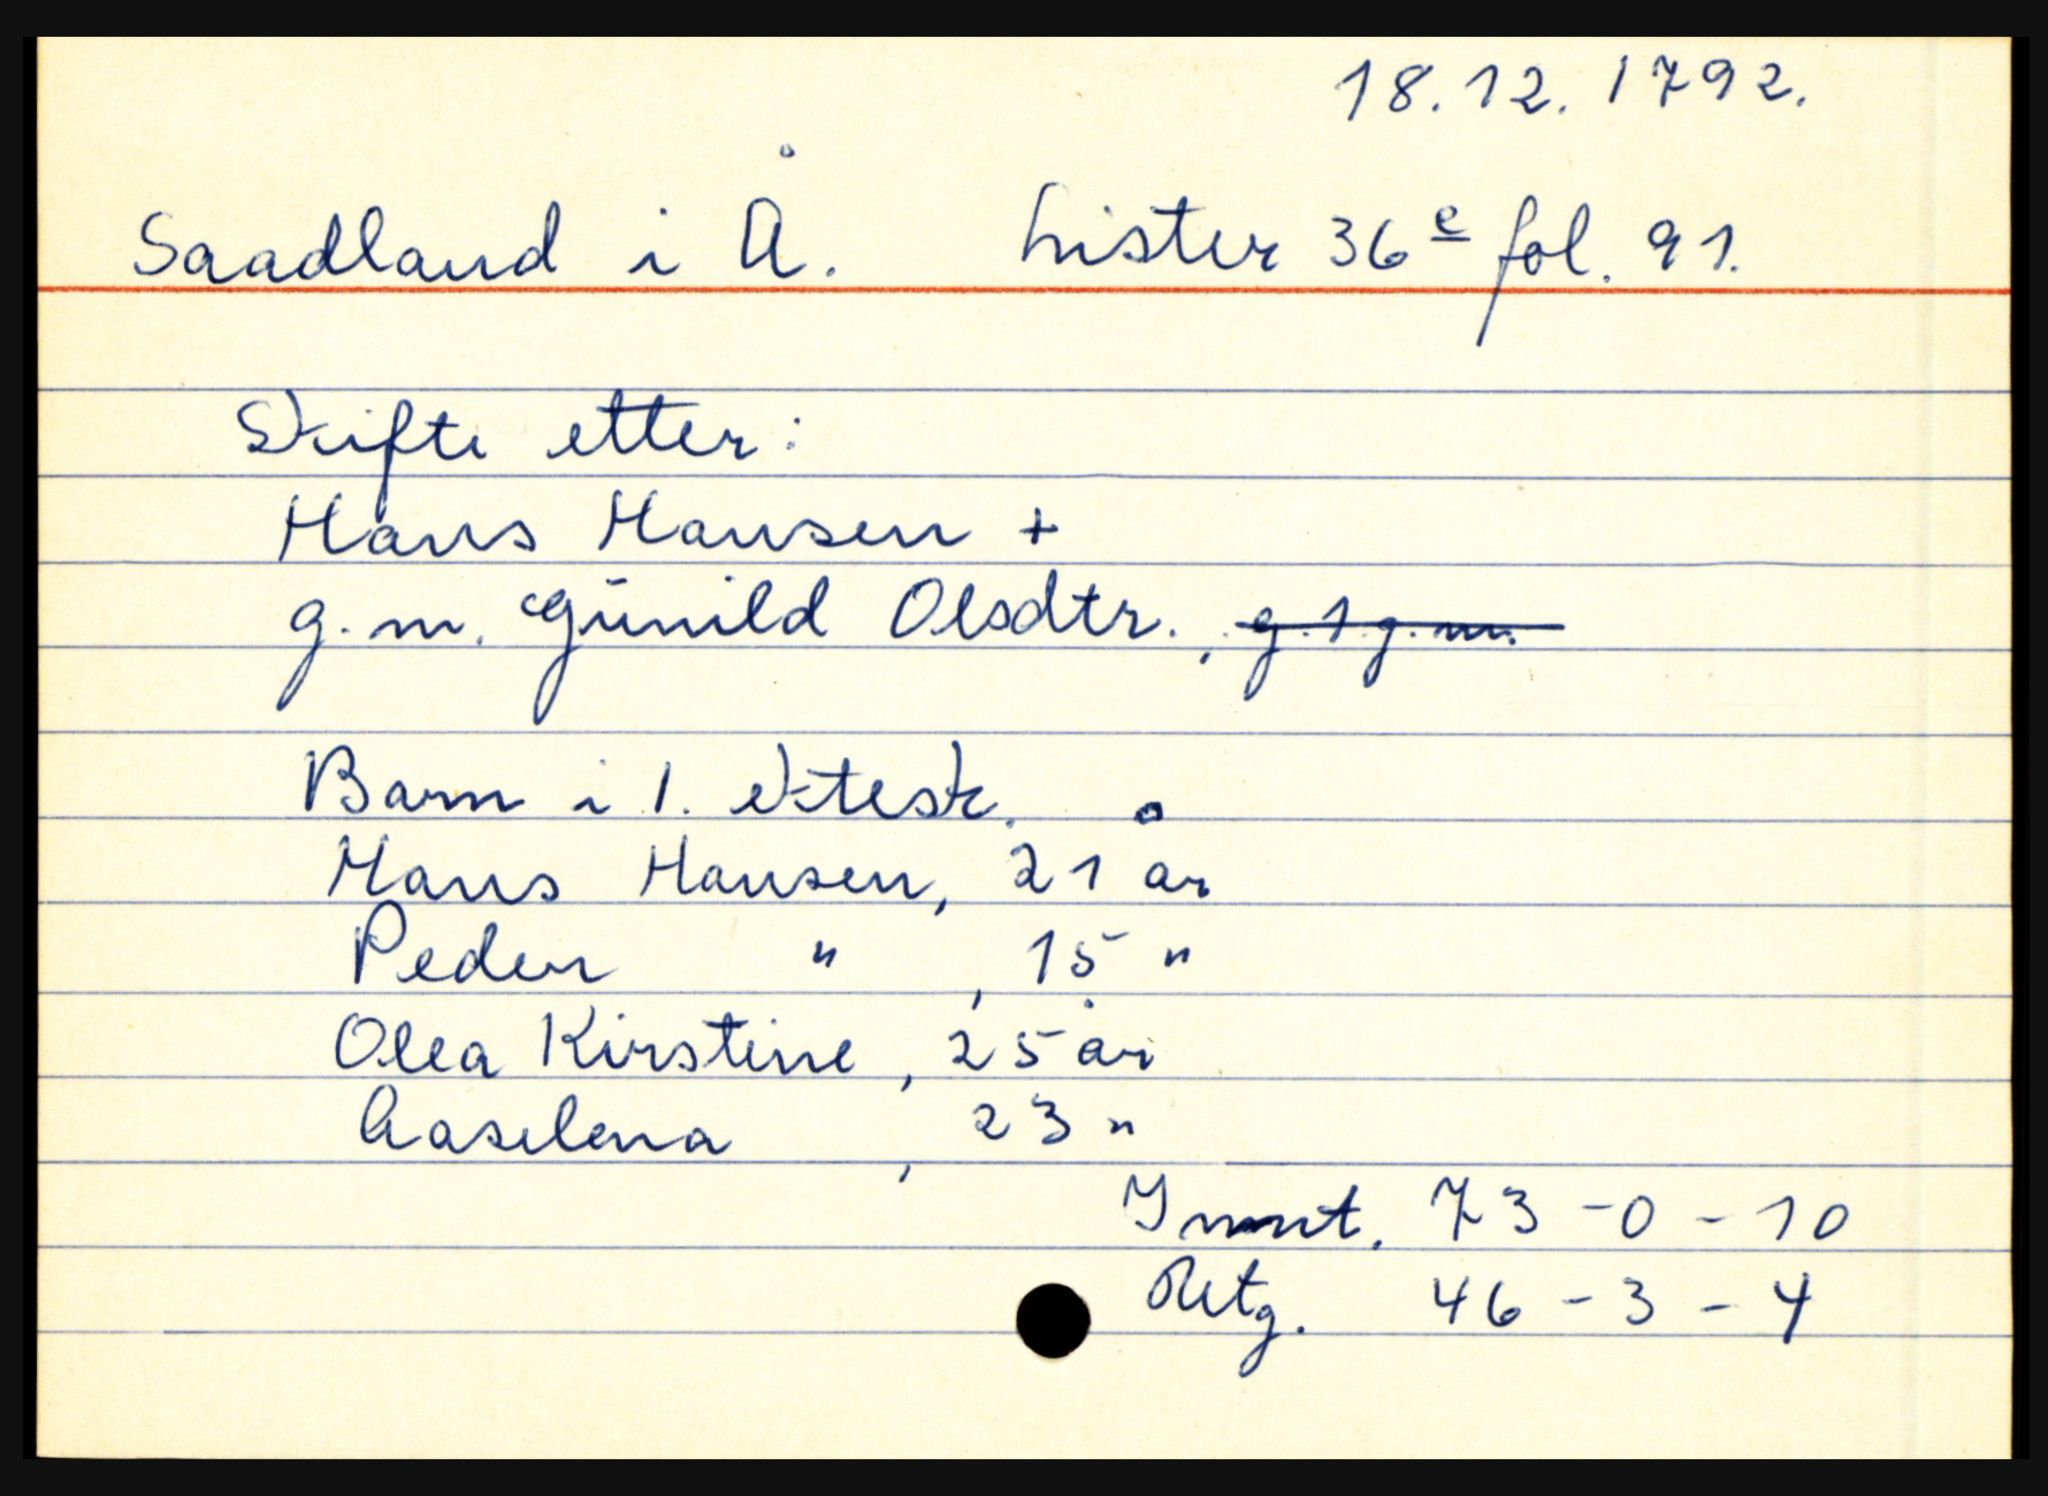 18.12.1792.
Saadland i Å. Lister 36e fol. 91.
Skifte etter:
Hans Hansen +
g.m. Gunild Olsdtr., g.1.g.m.
Barn i 1. ektesk.
Hans Hansen, 21 år
Peder " , 15 "
Olea Kirstine, 25 år
Aaselena , 23 "
Innt. 73-0-10
Netg. 46-3-4